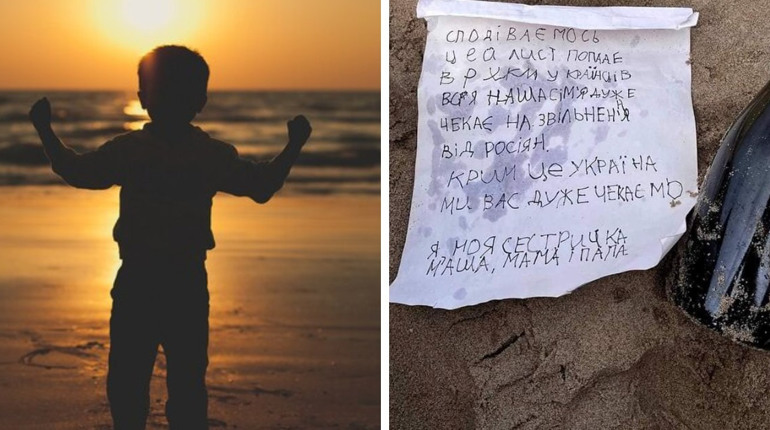 СПОДІВАЄМОСЬ
ЦЕЙ ЛИСТ ПОПАДЕ
В РУКИ УКРАЇНЦІВ
ВСЯ НАША СІМ'Я ДУЖЕ
ЧЕКАЄ НА ЗВІЛЬНЕНЯ
ВІД РОСІЯН.
КРИМ ЦЕ УКРАЇНА
МИ ВАС ДУЖЕ ЧЕКАЄМО
Я, МОЯ СЕСТРИЧКА
МАША, МАМА І ПАПА